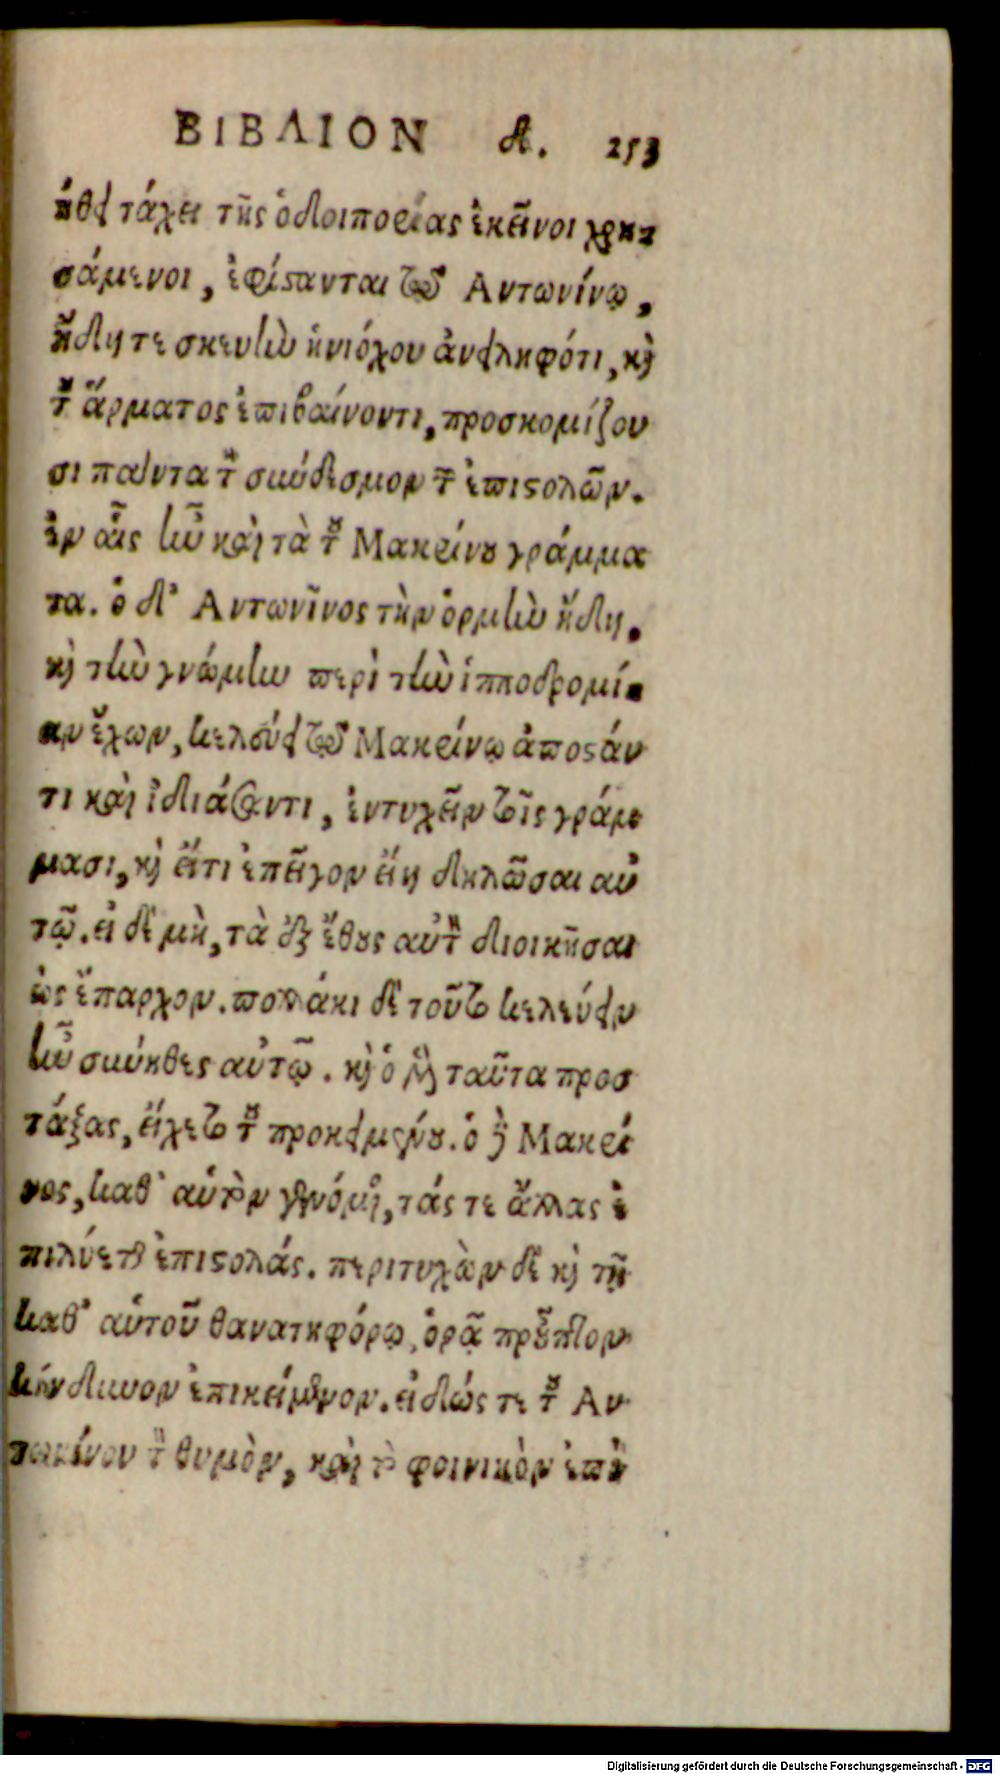 ΒΙΒΛΙΟΝ δ. 253
ήθει τάχει τῆς ὁδοιπορίας ἐκεῖνοι χρη
σάμενοι, ἐφίστανται τῷ Αντωνίνῳ,
ἤδη τε σκευὴν ἡνιόχου ἀνειληφότι, καὶ
τοῦ ἅρματος ἐπιβαίνοντι, προσκομίζου
σι πάντα τὸν σύνδεσμον τῶν ἐπιστολῶν.
ἐν αἷς ἦν καὶ τὰ τοῦ Μακρίνου γράμμα
τα. ὁ δ' Αντωνῖνος τὴν ὁρμὴν ἤδη,
καὶ τὴν γνώμην περὶ τὴν ἱπποδρομί
αν ἔχων, κελεύει τῷ Μακρίνῳ ἀποστάν
τι καὶ ἰδιάσαντι, ἐντυχεῖν τοῖς γράμ
μασι, καὶ εἴ τι ἐπεῖγον εἴη δηλῶσαι αὐ
τῷ. εἰ δὲ μὴ, τὰ ἐξ ἔθους αὐτὸν διοικῆσαι
ὡς ἔπαρχον. πολλάκι δὲ τοῦτο κελεύειν
ἦν σύνηθες αὐτῷ. καὶ ὁ μὲν ταῦτα προσ
τάξας, εἴχετο τοῦ προκειμένου. ὁ δὲ Μακρί
νος, καθ' αὑτὸν γενόμενος, τάς τε ἄλλας ἐ
πιλύεται ἐπιστολάς. περιτυχὼν δὲ καὶ τῇ
καθ' αὑτοῦ θανατηφόρῳ, ὁρᾷ πρὖπτον
κίνδυνον ἐπικείμενον. εἰδώς τε τοῦ Αν
τωνίνου τὸν θυμὸν, καὶ τὸ φοινικὸν ἐπὶ
Digitalisierung gefördert durch die Deutsche Forschungsgemeinschaft - DFG